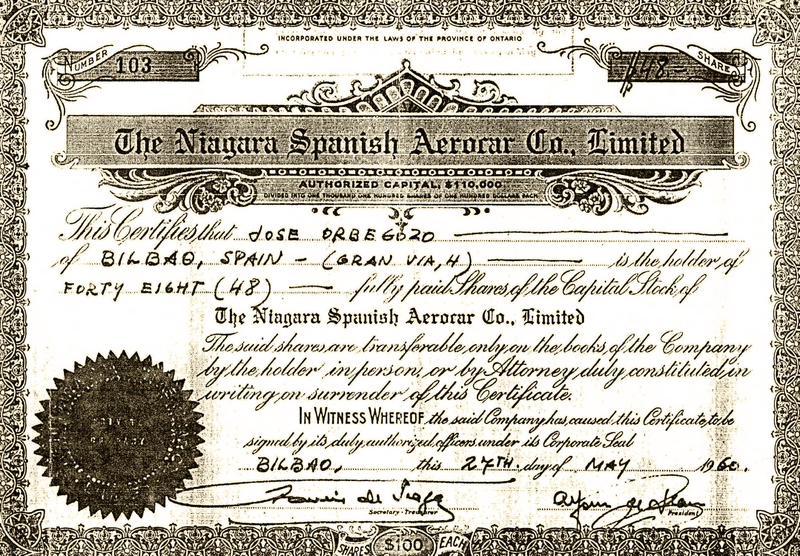 INCORPORATED UNDER THE LAWS OF THE PROVINCE OF ONTARIO
NUMBER 103 48 SHARES
The Niagara Spanish Aerocar Co., Limited
AUTHORIZED CAPITAL, $110,000
DIVIDED INTO ONE THOUSAND ONE HUNDRED SHARES OF ONE HUNDRED DOLLARS EACH
This Certifies that JOSE ORBEGOZO
of BILBAO, SPAIN - (GRAN VIA, 4) is the holder of
FORTY EIGHT (48) fully paid Shares of the Capital Stock of
The Niagara Spanish Aerocar Co., Limited
The said shares are transferable only on the books of the Company
by the holder in person or by Attorney duly constituted in
writing on surrender of this Certificate.
IN WITNESS WHEREOF the said Company has caused this Certificate to be
signed by its duly authorized officers under its Corporate Seal
BILBAO, this 27TH. day of MAY 1960.
Secretary-Treasurer President
SHARES $100 EACH